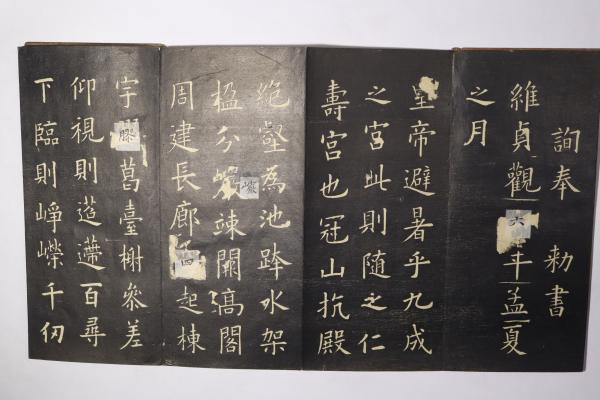 詢奉 勅書
維貞觀六年孟夏
之月
皇帝避暑乎九成
之宮此則隨之仁
壽宮也冠山抗殿
絕壑為池跨水架
楹分巖竦闕高閣
周建長廊四起棟
宇膠葛臺榭參差
仰視則迢遰百尋
下臨則崢嶸千仞